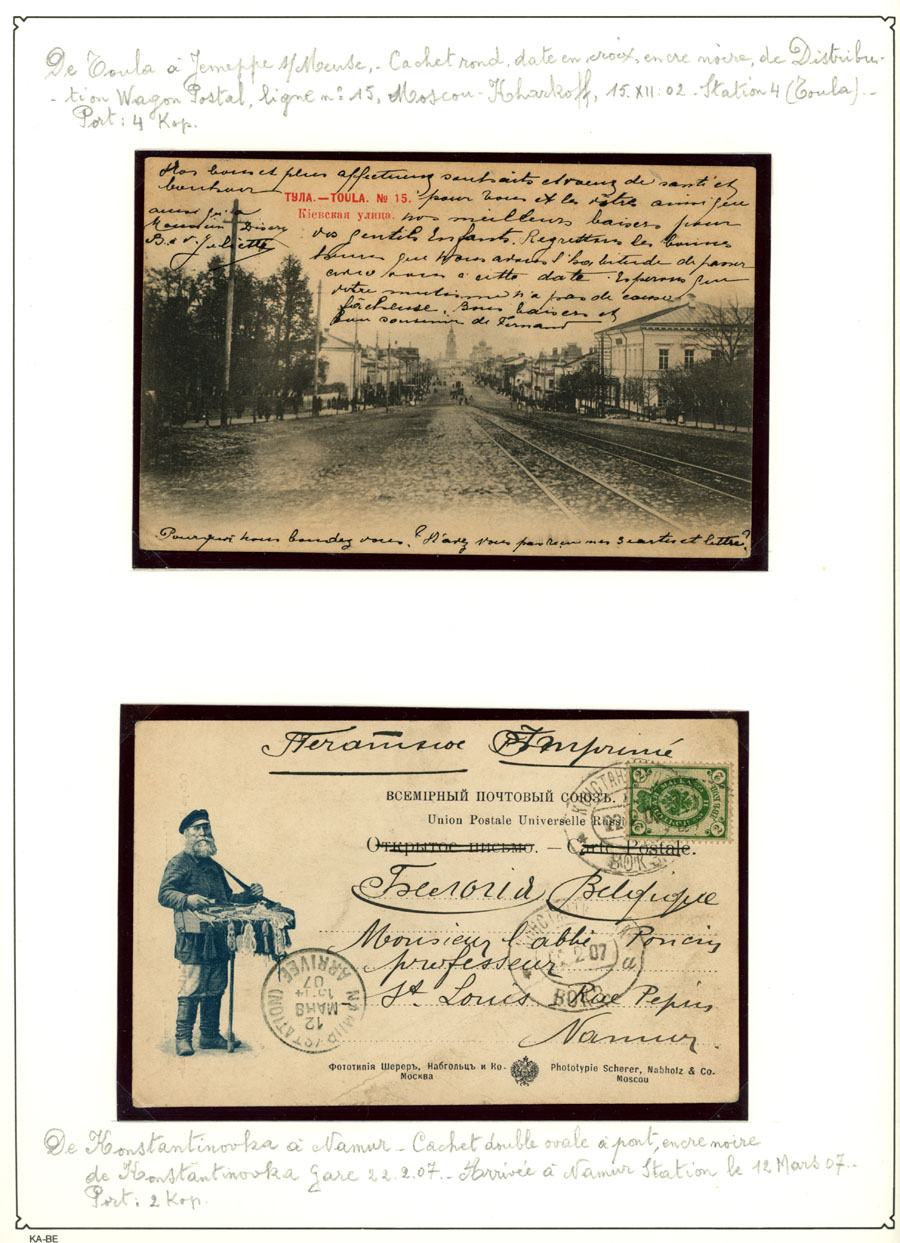 De Toula à Jemeppe s/Meuse. - Cachet rond, date en croix, encre noire, de Distribu-
-tion Wagon Postal, ligne n° 15, Moscou-Kharkoff, 15.XII:02 - Station 4 (Toula). -
Port: 4 Kop.
Nos bons et plus affectueux souhaits et voeux de santé et
bonheur
ТУЛА.—TOULA. № 15.
pour vous et les vôtres ainsi que
Кіевская улица.
nos meilleurs baisers pour
vos gentils Enfants. Regrettons les bonnes
heures que nous avions l'habitude de passer
avec vous à cette date. Esperons que
votre mutisme n'a pas de cause
fâcheuse. Bons baisers et
bon souvenir de Fernand
ainsi que
Juliette
Pourquoi nous boudez vous? N'avez vous pas reçu nos 3 cartes et lettre?
Печатное Imprimé
ВСЕМІРНЫЙ ПОЧТОВЫЙ СОЮЗЪ.
Union Postale Universelle Russ
Открытое письмо. — Carte Postale.
Бельгія Belgique
Monsieur l'abbé Poncin
professeur
St. Louis Rue Pépin
Namur.
22
2 07
ВОК
NAMUR (STATION)
12
MARS
15-14
07
ARRIVÉE
Фототипія Шереръ, Набгольцъ и Ко.
Москва
Phototypie Scherer, Nabholz & Co.
Moscou
De Konstantinovka à Namur - Cachet double ovale à pont, encre noire
de Konstantinovka Gare 22.2.07. - Arrivée à Namur Station le 12 Mars 07. -
Port: 2 Kop.
KA-BE